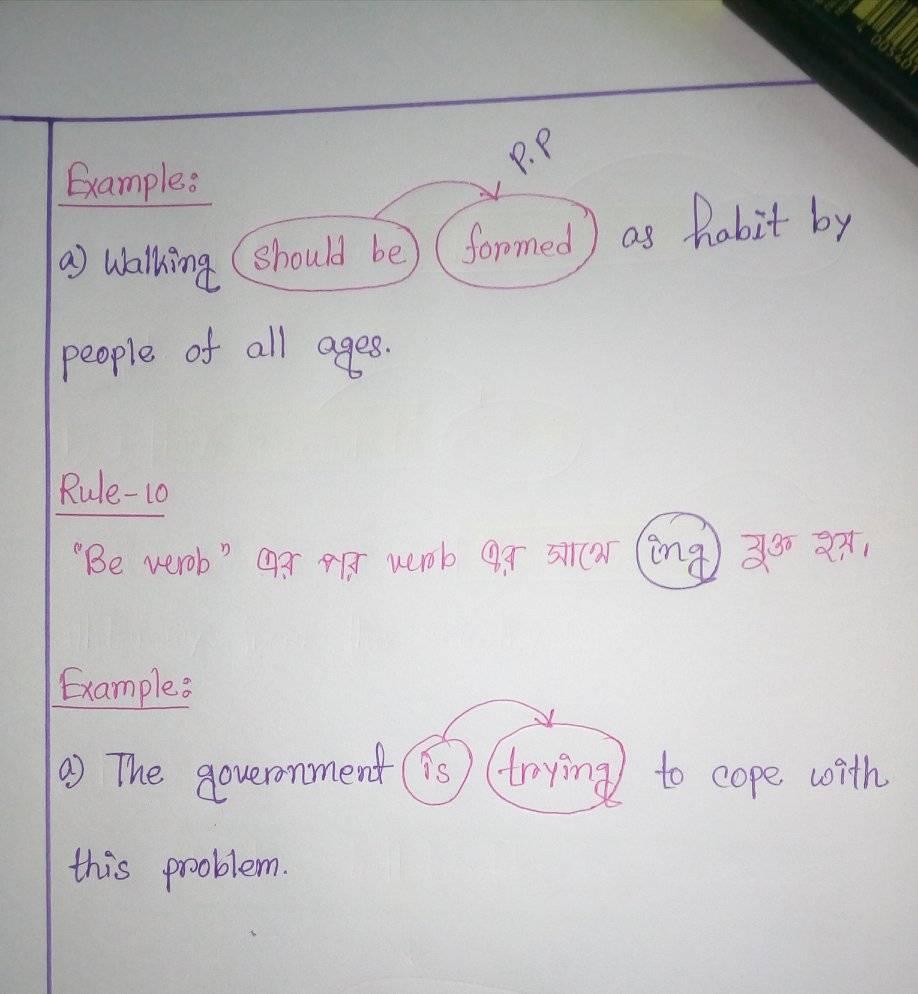 P.P
Example:
a) Walking should be formed as habit by
people of all ages.
Rule-10
"Be verb" এর পর verb এর সাথে ing যুক্ত হয়।
Example:
a) The government is trying to cope with
this problem.